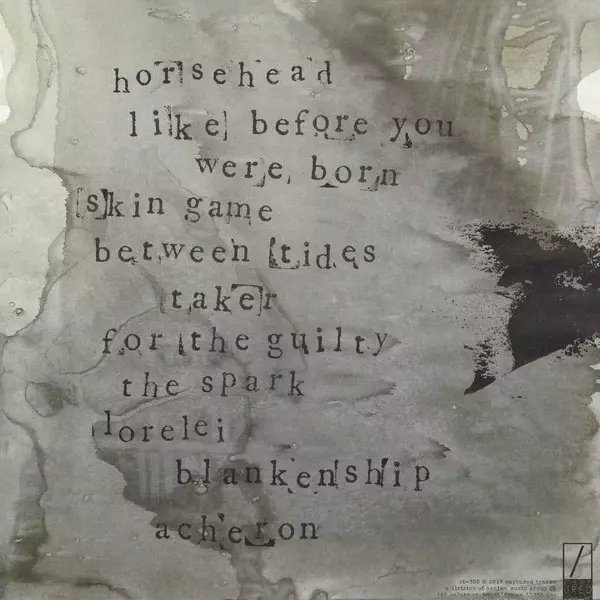 horsehead
like before you
were born
skin game
between tides
taker
for the guilty
the spark
lorelei
blankenship
acheron
2019 captured tracks
a division of omnian music group